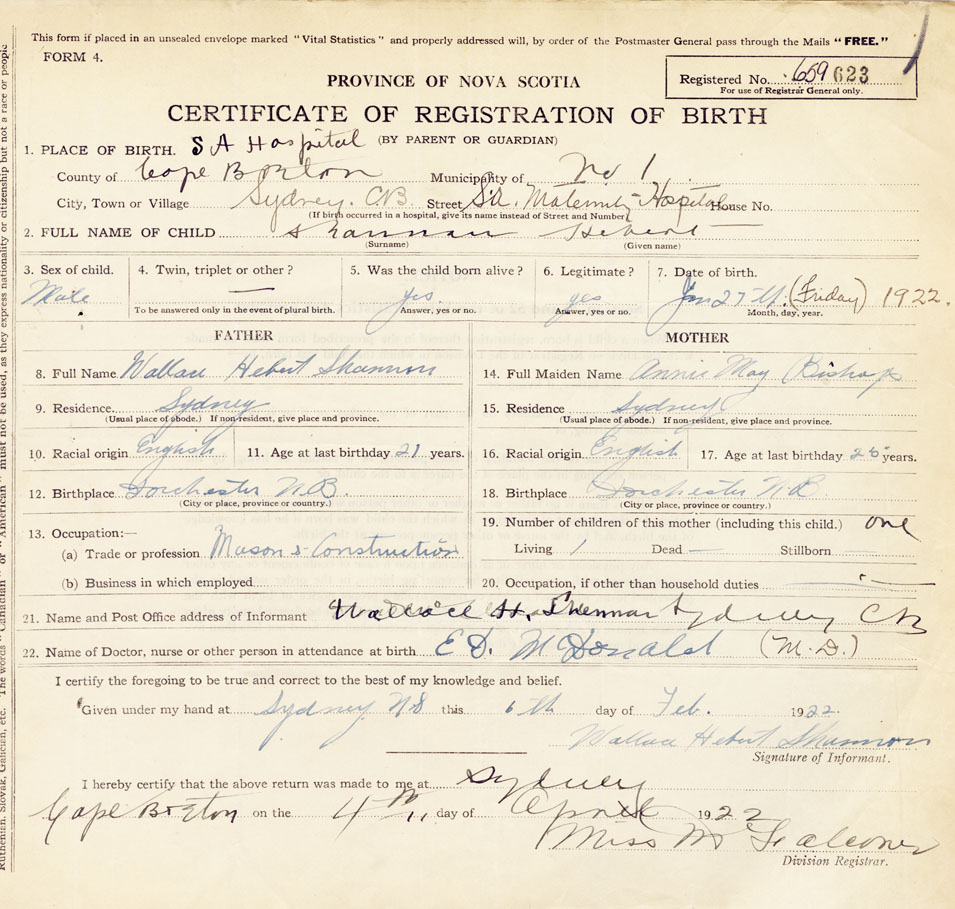 This form if placed in an unsealed envelope marked "Vital Statistics" and properly addressed will, by order of the Postmaster General pass through the Mails "FREE."
FORM 4.
PROVINCE OF NOVA SCOTIA
Registered No. 659 623
For use of Registrar General only.
CERTIFICATE OF REGISTRATION OF BIRTH
(BY PARENT OR GUARDIAN)
1. PLACE OF BIRTH. S A Hospital
County of Cape Breton Municipality of No 1
City, Town or Village Sydney. C.B. Street S.A. Maternity Hospital House No.
(If birth occurred in a hospital, give its name instead of Street and Number)
2. FULL NAME OF CHILD Shannon Hebert
(Surname) (Given name)
3. Sex of child. 4. Twin, triplet or other? 5. Was the child born alive? 6. Legitimate? 7. Date of birth.
Male — yes. yes Jan 27th. (Friday) 1922.
To be answered only in the event of plural birth. Answer, yes or no. Answer, yes or no. Month, day, year.
FATHER MOTHER
8. Full Name Wallace Hebert Shannon 14. Full Maiden Name Annie May Bishop
9. Residence Sydney 15. Residence Sydney
(Usual place of abode.) If non-resident, give place and province. (Usual place of abode.) If non-resident, give place and province.
10. Racial origin English 11. Age at last birthday 21 years. 16. Racial origin English 17. Age at last birthday years.
12. Birthplace Dorchester N.B. 18. Birthplace Dorchester N.B
(City or place, province or country.) (City or place, province or country.)
13. Occupation:— 19. Number of children of this mother (including this child.) one
(a) Trade or profession Mason & Construction Living 1 Dead — Stillborn
(b) Business in which employed 20. Occupation, if other than household duties —
21. Name and Post Office address of Informant Wallace H. Shannon Sydney CB
22. Name of Doctor, nurse or other person in attendance at birth E D. McDonald (M.D.)
I certify the foregoing to be true and correct to the best of my knowledge and belief.
Given under my hand at Sydney NS this 6th day of Feb. 1922.
Wallace Hebert Shannon
Signature of Informant.
I hereby certify that the above return was made to me at Sydney
Cape Breton on the 4th day of April 1922
Miss M Falconer
Division Registrar.
Ruthenian, Slovak, Galician, etc. The words "Canadian" or "American" must not be used, as they express nationality or citizenship but not a race or people